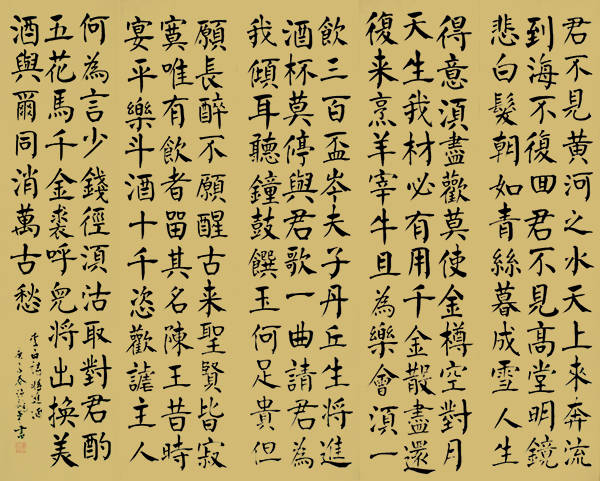 君不見黄河之水天上来奔流
到海不復囬君不見高堂明鏡
悲白髮朝如青絲暮成雪人生
得意湏盡歡莫使金樽空對月
天生我材必有用千金散盡還
復来烹羊宰牛且為樂會湏一
飲三百盃岑夫子丹丘生將進
酒杯莫停與君歌一曲請君為
我傾耳聽鐘鼓饌玉何足貴但
願長醉不願醒古来聖賢皆寂
寞唯有飲者留其名陳王昔時
宴平樂斗酒十千恣歡謔主人
何為言少錢徑湏沽取對君酌
五花馬千金裘呼兒將出換美
酒與爾同消萬古愁
李白詩將進酒
庚子春許書